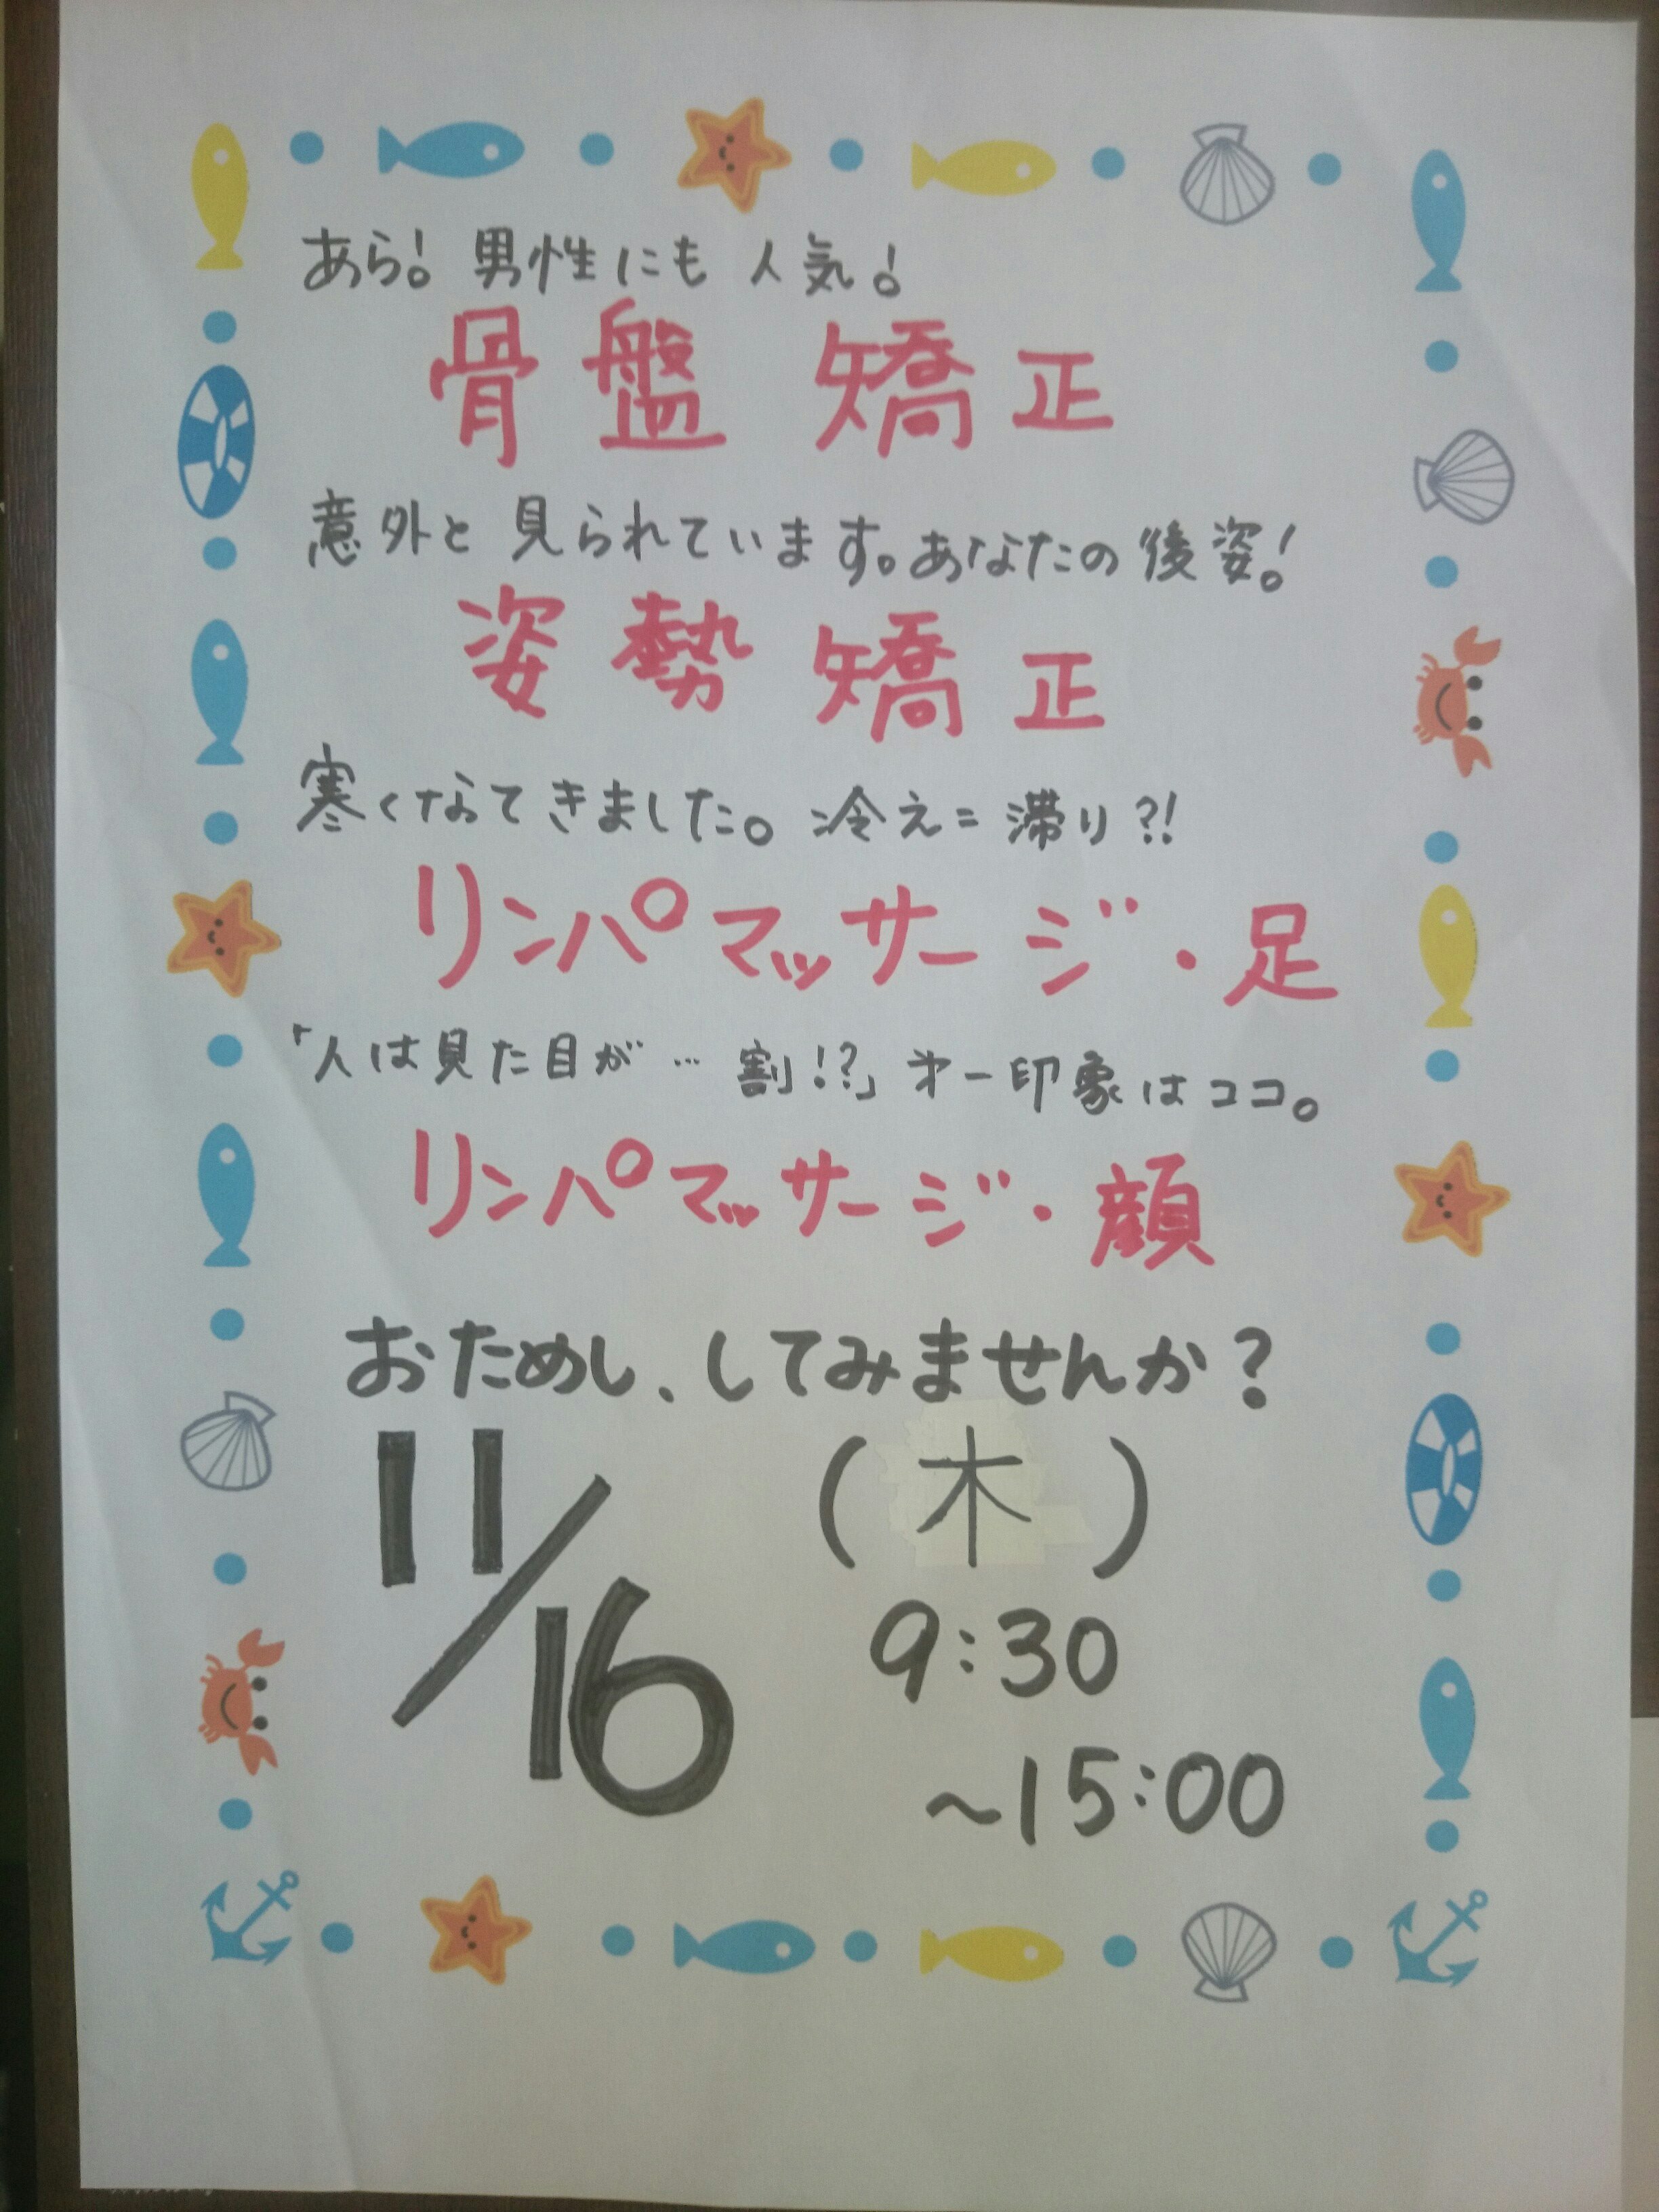 あら！男性にも人気！
骨盤矯正
意外と見られています。あなたの後姿！
姿勢矯正
寒くなてきました。冷え=滞り?!
リンパマッサージ・足
「人は見た目が…割!?」才一印象はココ。
リンパマッサージ・顔
おためし、してみませんか？
11/16（木）
9:30
〜15:00